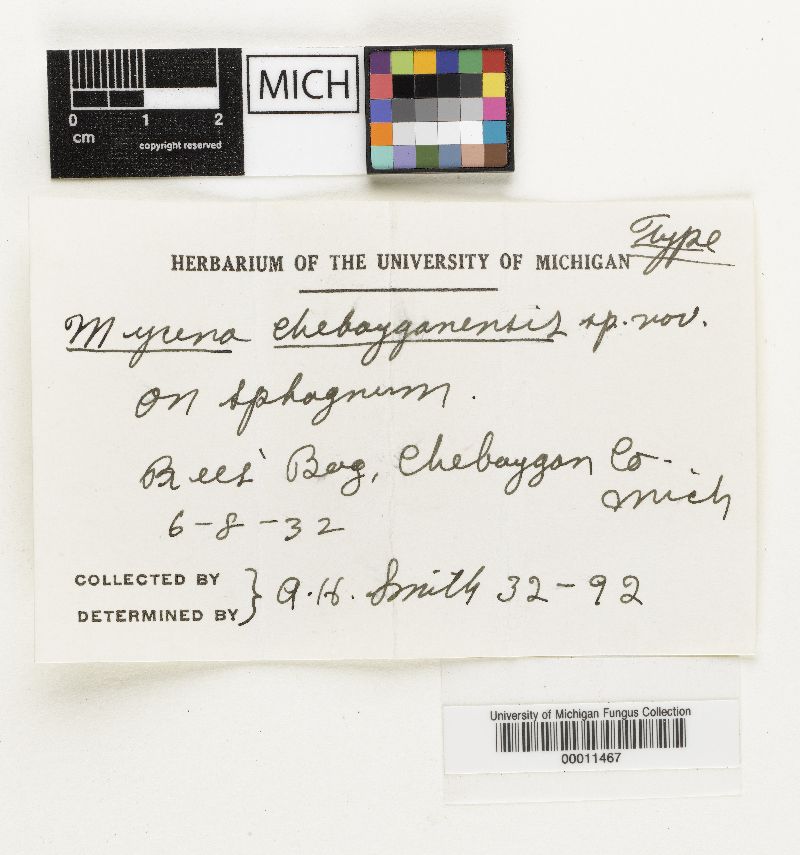 0 1 2
cm
copyright reserved
MICH
Type
HERBARIUM OF THE UNIVERSITY OF MICHIGAN
Mycena cheboyganensis sp. nov.
on sphagnum.
Rees' Bog, Cheboygan Co.
Mich
6-8-32
COLLECTED BY
DETERMINED BY } A.H. Smith 32-92
University of Michigan Fungus Collection
00011467